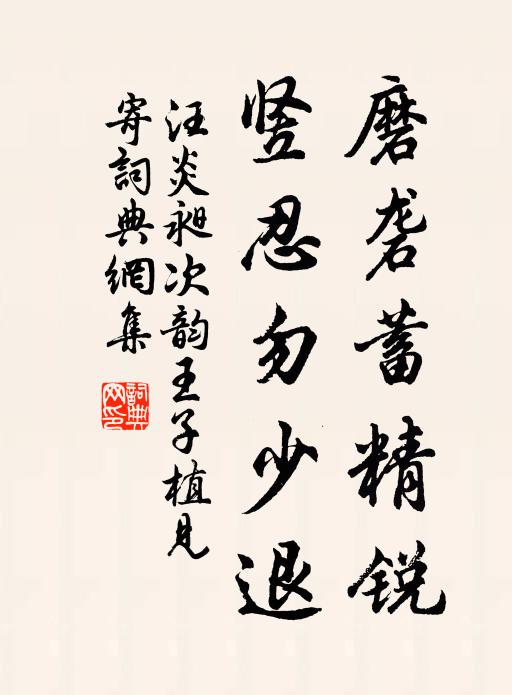 磨砻蓄精锐
竖忍勿少退
汪炎昶次韵王子植见
寄詞典網集
詞典
网印